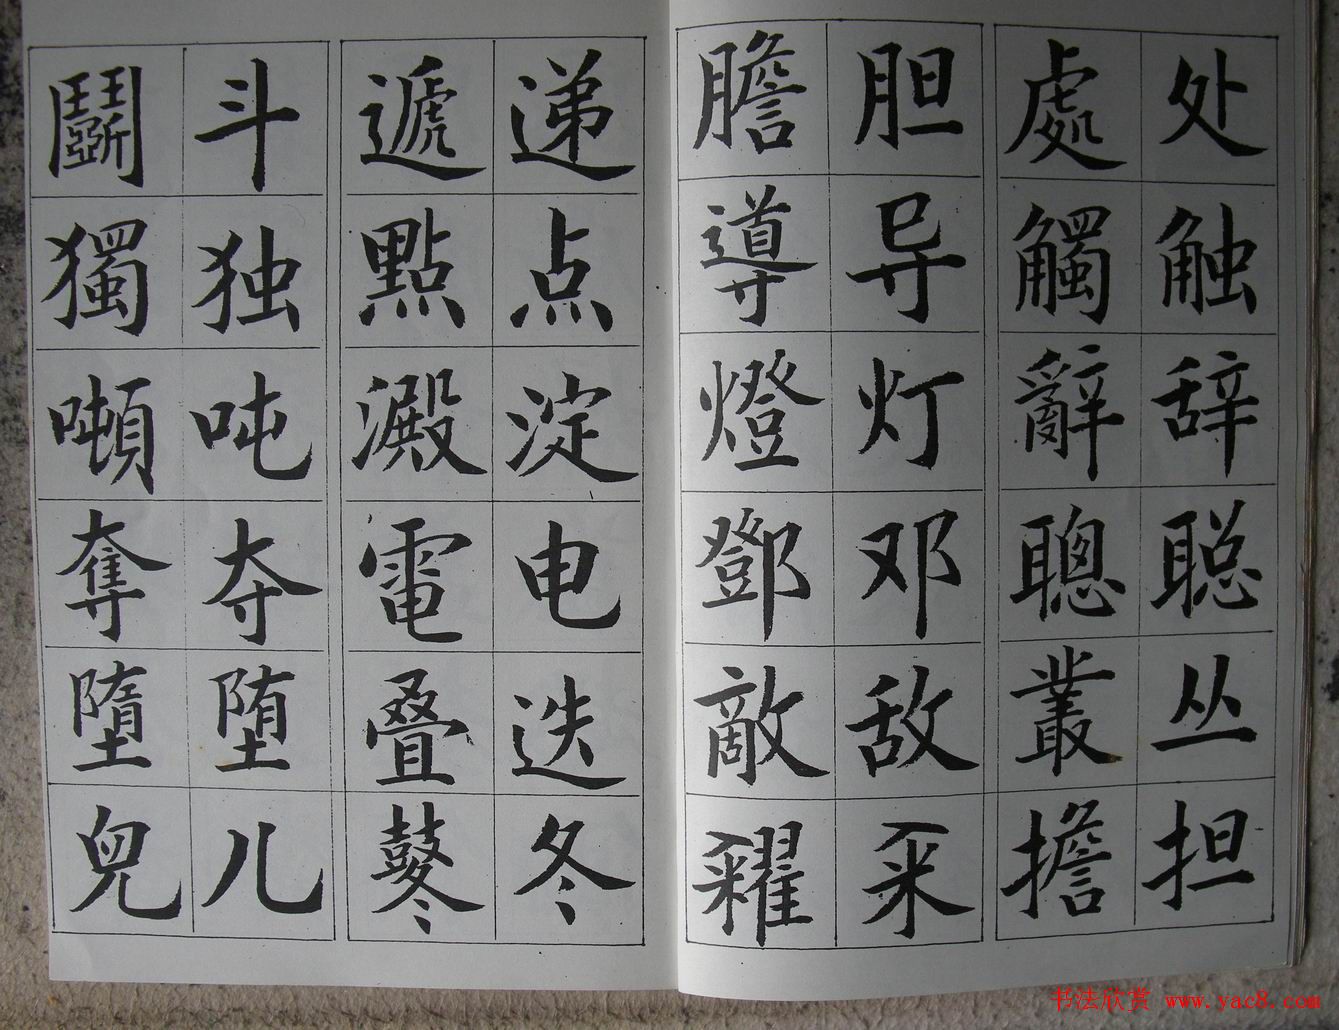 处触辞聪丛担
處觸辭聰叢擔
胆导灯邓敌籴
膽導燈鄧敵糴
递点淀电迭冬
遞點澱電叠鼕
斗独吨夺堕儿
鬭獨噸奪墮兒
书法欣赏 www.yac8.com